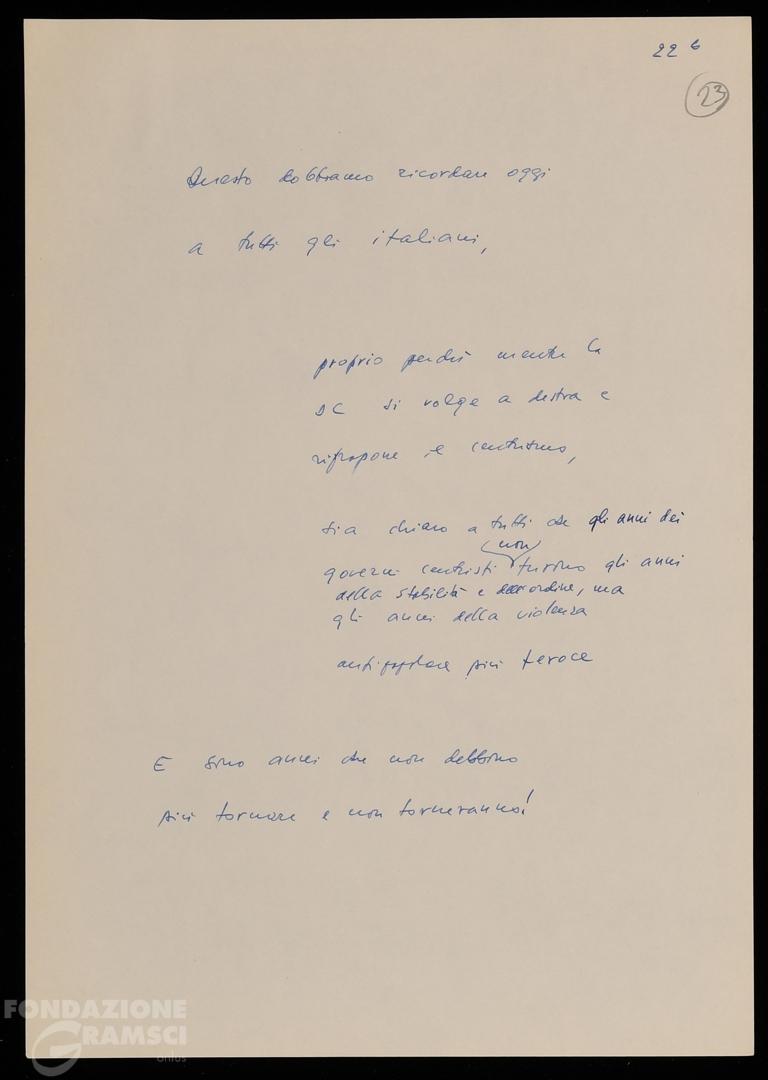 22 b
23
Questo dobbiamo ricordare oggi
a tutti gli italiani,
proprio perché mentre la
DC si volge a destra e
ripropone il centrismo,
sia chiaro a tutti che gli anni dei
non
governi centristi furono gli anni
della stabilità e dell'ordine, ma
gli anni della violenza
antipopolare più feroce
E sono anni che non debbono
più tornare e non torneranno!
FONDAZIONE
GRAMSCI
onlus